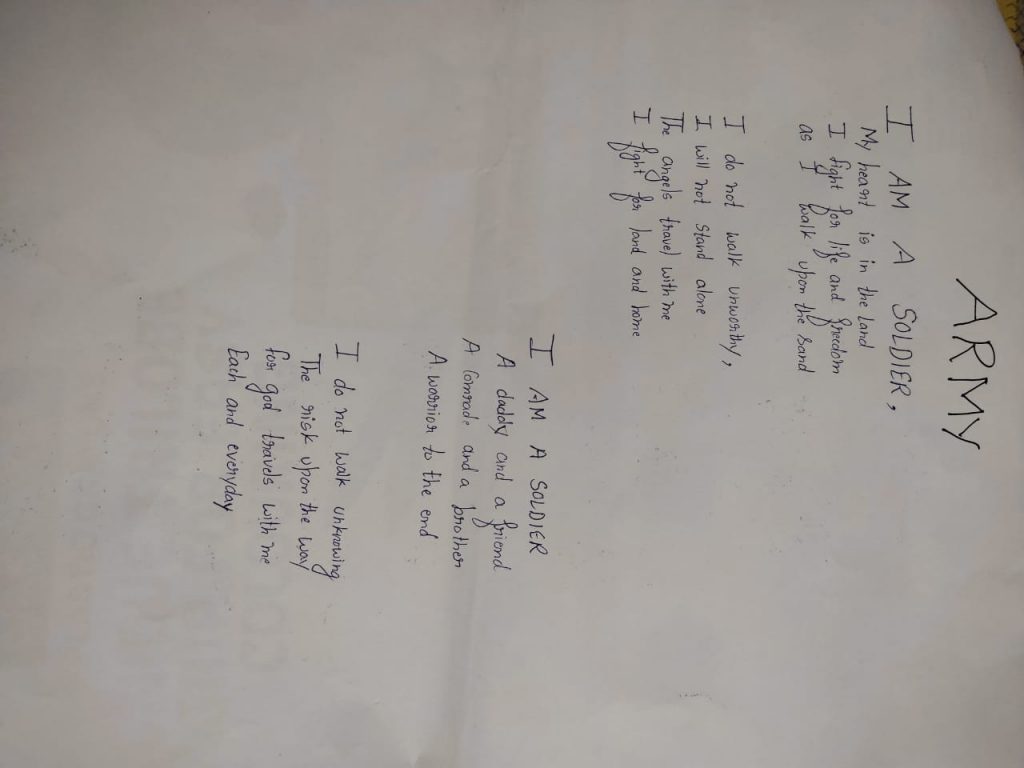 ARMY
I AM A SOLDIER,
My heart is in the land
I fight for life and freedom
as I walk upon the sand
I do not walk unworthy,
I will not stand alone
The angels travel with me
I fight for land and home
I AM A SOLDIER
A daddy and a friend
A Comrade and a brother
A warrior to the end
I do not walk unknowing
The risk upon the way
for god travels with me
Each and everyday